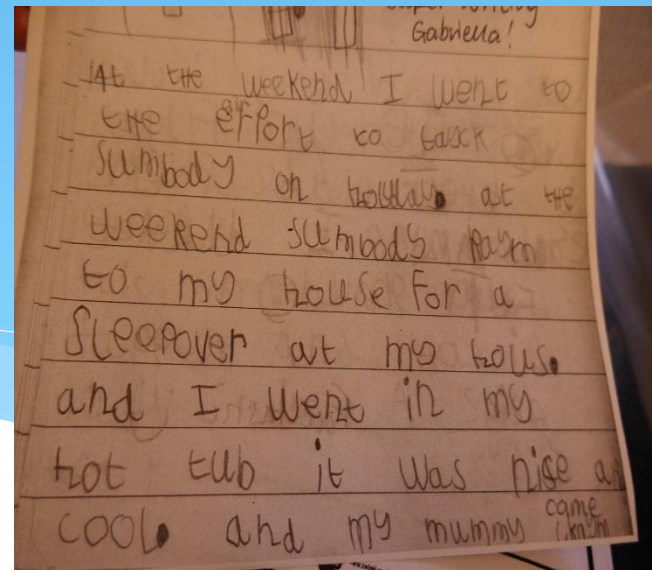 Gabriella!
At the weekend I went to
the effort to tasck
sumbody on holiday. at the
weekend sumbody kaym
to my house for a
sleepover at my hous.
and I went in my
hot tub it was nise an
cool. and my mummy came